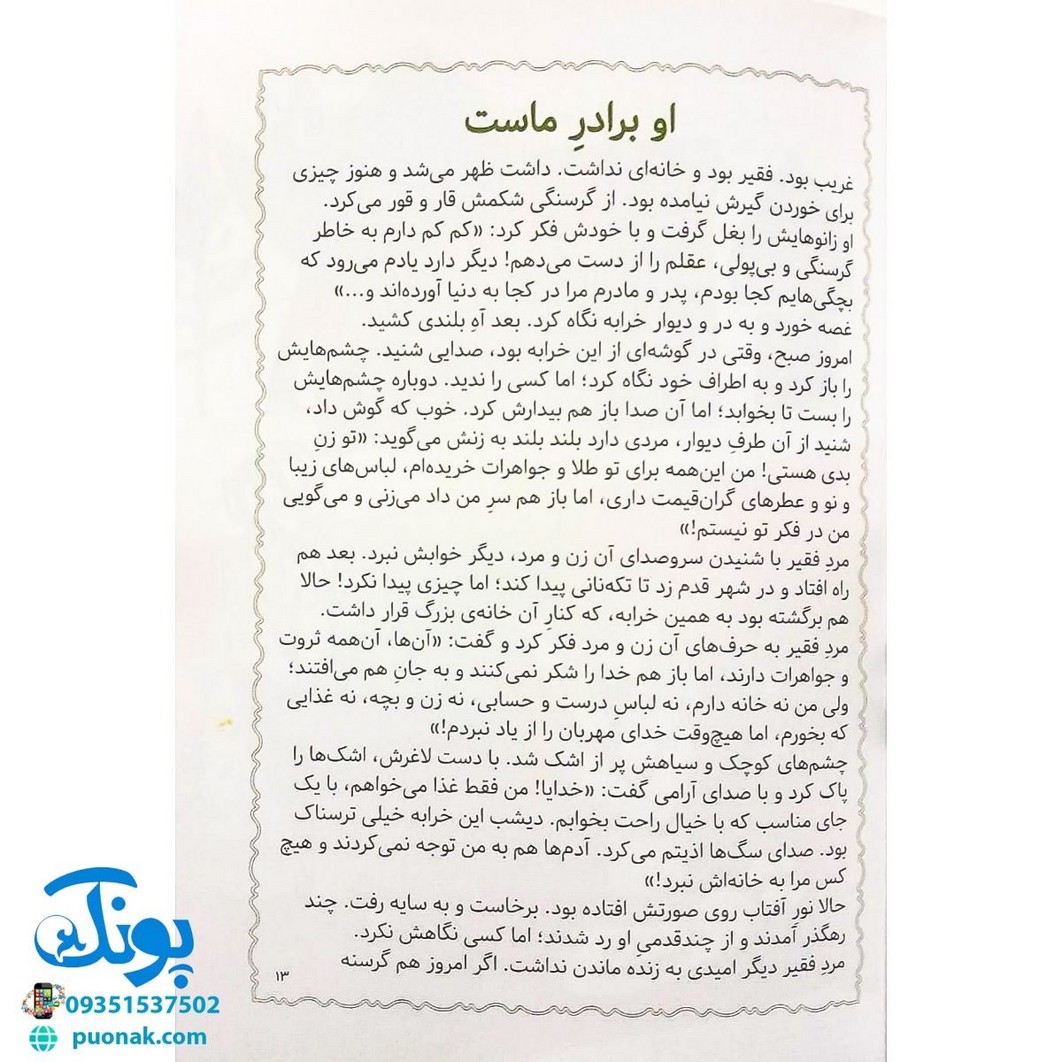 او برادرِ ماست
غریب بود. فقیر بود و خانه‌ای نداشت. داشت ظهر می‌شد و هنوز چیزی
برای خوردن گیرش نیامده بود. از گرسنگی شکمش قار و قور می‌کرد.
او زانوهایش را بغل گرفت و با خودش فکر کرد: «کم کم دارم به خاطر
گرسنگی و بی‌پولی، عقلم را از دست می‌دهم! دیگر دارد یادم می‌رود که
بچگی‌هایم کجا بودم، پدر و مادرم مرا در کجا به دنیا آورده‌اند و...»
غصه خورد و به در و دیوار خرابه نگاه کرد. بعد آهِ بلندی کشید.
امروز صبح، وقتی در گوشه‌ای از این خرابه بود، صدایی شنید. چشم‌هایش
را باز کرد و به اطراف خود نگاه کرد؛ اما کسی را ندید. دوباره چشم‌هایش
را بست تا بخوابد؛ اما آن صدا باز هم بیدارش کرد. خوب که گوش داد،
شنید از آن طرفِ دیوار، مردی دارد بلند بلند به زنش می‌گوید: «تو زنِ
بدی هستی! من این‌همه برای تو طلا و جواهرات خریده‌ام، لباس‌های زیبا
و نو و عطرهای گران‌قیمت داری، اما باز هم سرِ من داد می‌زنی و می‌گویی
من در فکر تو نیستم!»
مردِ فقیر با شنیدن سروصدای آن زن و مرد، دیگر خوابش نبرد. بعد هم
راه افتاد و در شهر قدم زد تا تکه‌نانی پیدا کند؛ اما چیزی پیدا نکرد! حالا
هم برگشته بود به همین خرابه، که کنارِ آن خانه‌ی بزرگ قرار داشت.
مردِ فقیر به حرف‌های آن زن و مرد فکر کرد و گفت: «آن‌ها، آن‌همه ثروت
و جواهرات دارند، اما باز هم خدا را شکر نمی‌کنند و به جانِ هم می‌افتند؛
ولی من نه خانه دارم، نه لباسِ درست و حسابی، نه زن و بچه، نه غذایی
که بخورم، اما هیچ‌وقت خدای مهربان را از یاد نبردم!»
چشم‌های کوچک و سیاهش پر از اشک شد. با دست لاغرش، اشک‌ها را
پاک کرد و با صدای آرامی گفت: «خدایا! من فقط غذا می‌خواهم، با یک
جای مناسب که با خیال راحت بخوابم. دیشب این خرابه خیلی ترسناک
بود. صدای سگ‌ها اذیتم می‌کرد. آدم‌ها هم به من توجه نمی‌کردند و هیچ
کس مرا به خانه‌اش نبرد!»
حالا نورِ آفتاب روی صورتش افتاده بود. برخاست و به سایه رفت. چند
رهگذر آمدند و از چندقدمیِ او رد شدند؛ اما کسی نگاهش نکرد.
مردِ فقیر دیگر امیدی به زنده ماندن نداشت. اگر امروز هم گرسنه
۱۳
پونک
09351537502
puonak.com